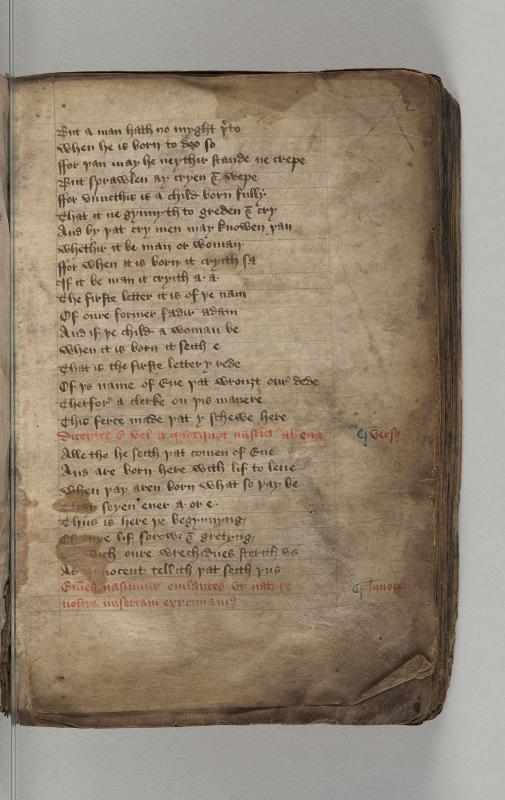 2
But a man hath no myght þto
When he is born to do so
ffor þan may he neythir stande ne crepe
But sprawlen ay cryen & wepe
ffor vnnethis is a child born fully
That it ne gynnyth to greden & cry
And by þat cry men may knowen þan
Whethir it be man or woman
ffor when it is born it cryith sa
If it be man it cryith a · a ·
The firste letter it is of þe nam
Of oure former fadir adam
And if þe child a woman be
When it is born it seith e
That is the firste letter y rede
Of þe name of Eue þat wrouȝt our dede
Therfor a clerke on þis manere
This ferce made þat y schewe here
Dicentes E vel a quotquot nascūt ab eua
¶ vers
Alle tho he seith þat comen of Eue
And are born here with lif to leue
When þay aren born what so þay be
þay seyen euer a · or e ·
Thus is here þe begynnyng
lif sorowe & gretyng
oure wrechidnes sterith vs
As Innocent tellith þat seith þus
nascimur eiulantes vt nature
¶ Innocen
nostre miseriam exprimam